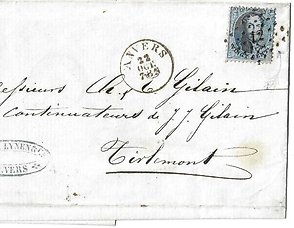 ANVERS
22
OCT
Messieurs A. & C. Gilain
Continuateurs de J. J. Gilain
Tirlemont
LYNEN &
VERS